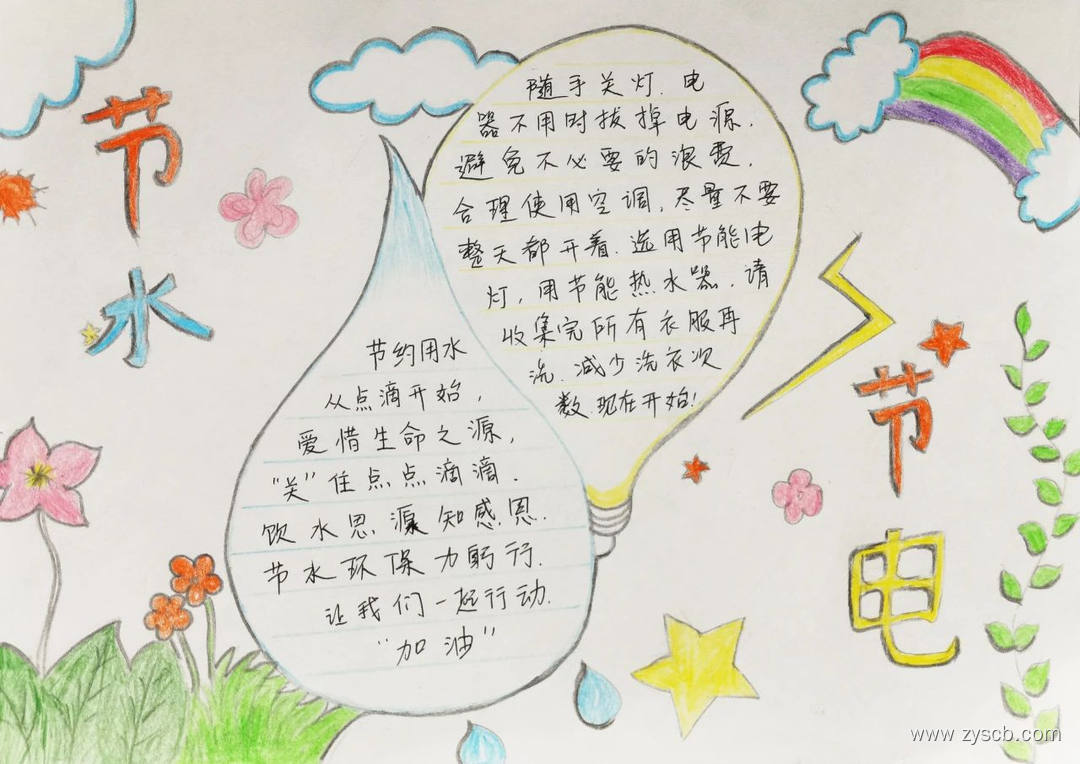 节水
随手关灯.电
器不用时拔掉电源.
避免不必要的浪费.
合理使用空调,尽量不要
整天都开着.选用节能电
灯,用节能热水器.请
收集完所有衣服再
洗.减少洗衣次
数.现在开始!
节约用水
从点滴开始,
爱惜生命之源,
“关”住点点滴滴.
饮水思源知感恩.
节水环保力躬行.
让我们一起行动.
“加油”
节电
www.zyscb.com